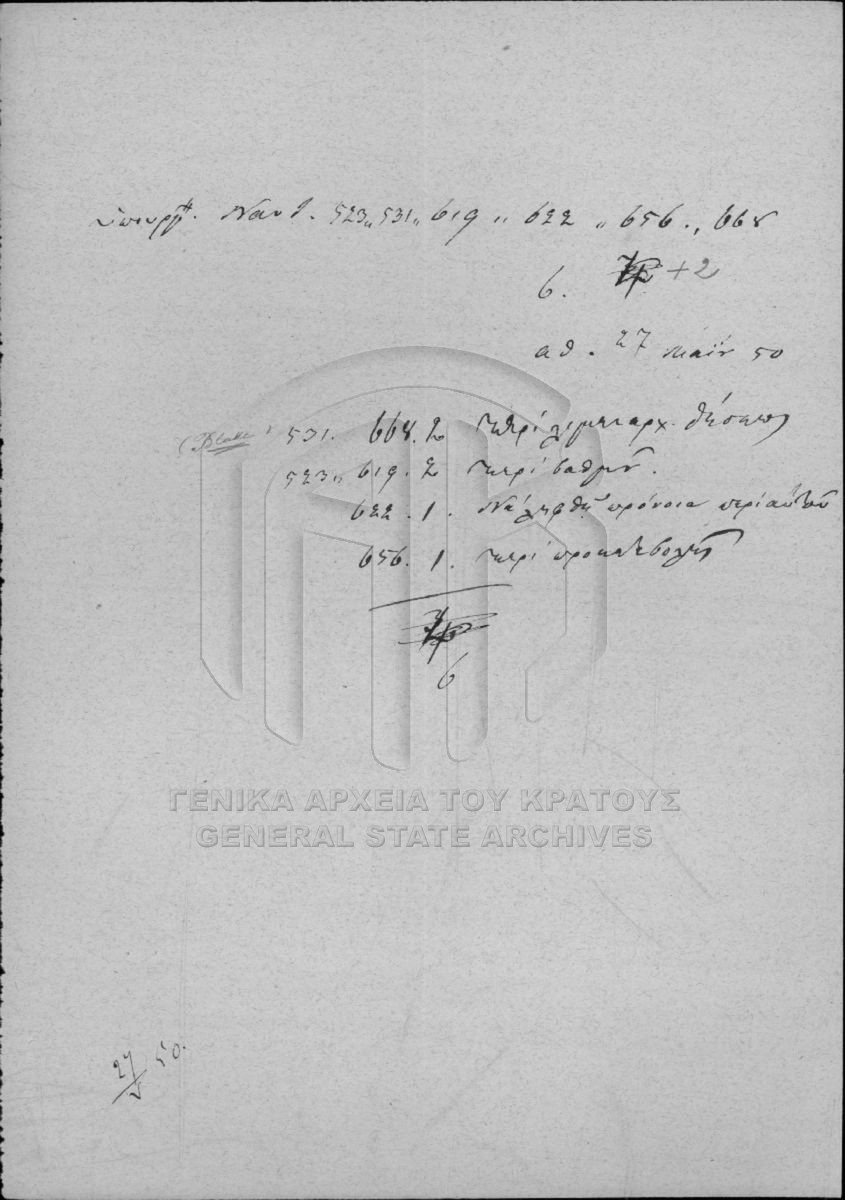 Υπουργ. Ναυτ. 523,, 531,, 619 ,, 622 ,, 656 ,, 668
6. +2
αθ. 27 Μαΐου 50
531. 668. 2 περί λιμεναρχ. θέσεως
523,, 619. 2 περί βαθμών.
622. 1. Να ληφθή πρόνοια περί αυτού
656. 1. περί προκαταβολής
6
ΓΕΝΙΚΑ ΑΡΧΕΙΑ ΤΟΥ ΚΡΑΤΟΥΣ
GENERAL STATE ARCHIVES
27/V 50.